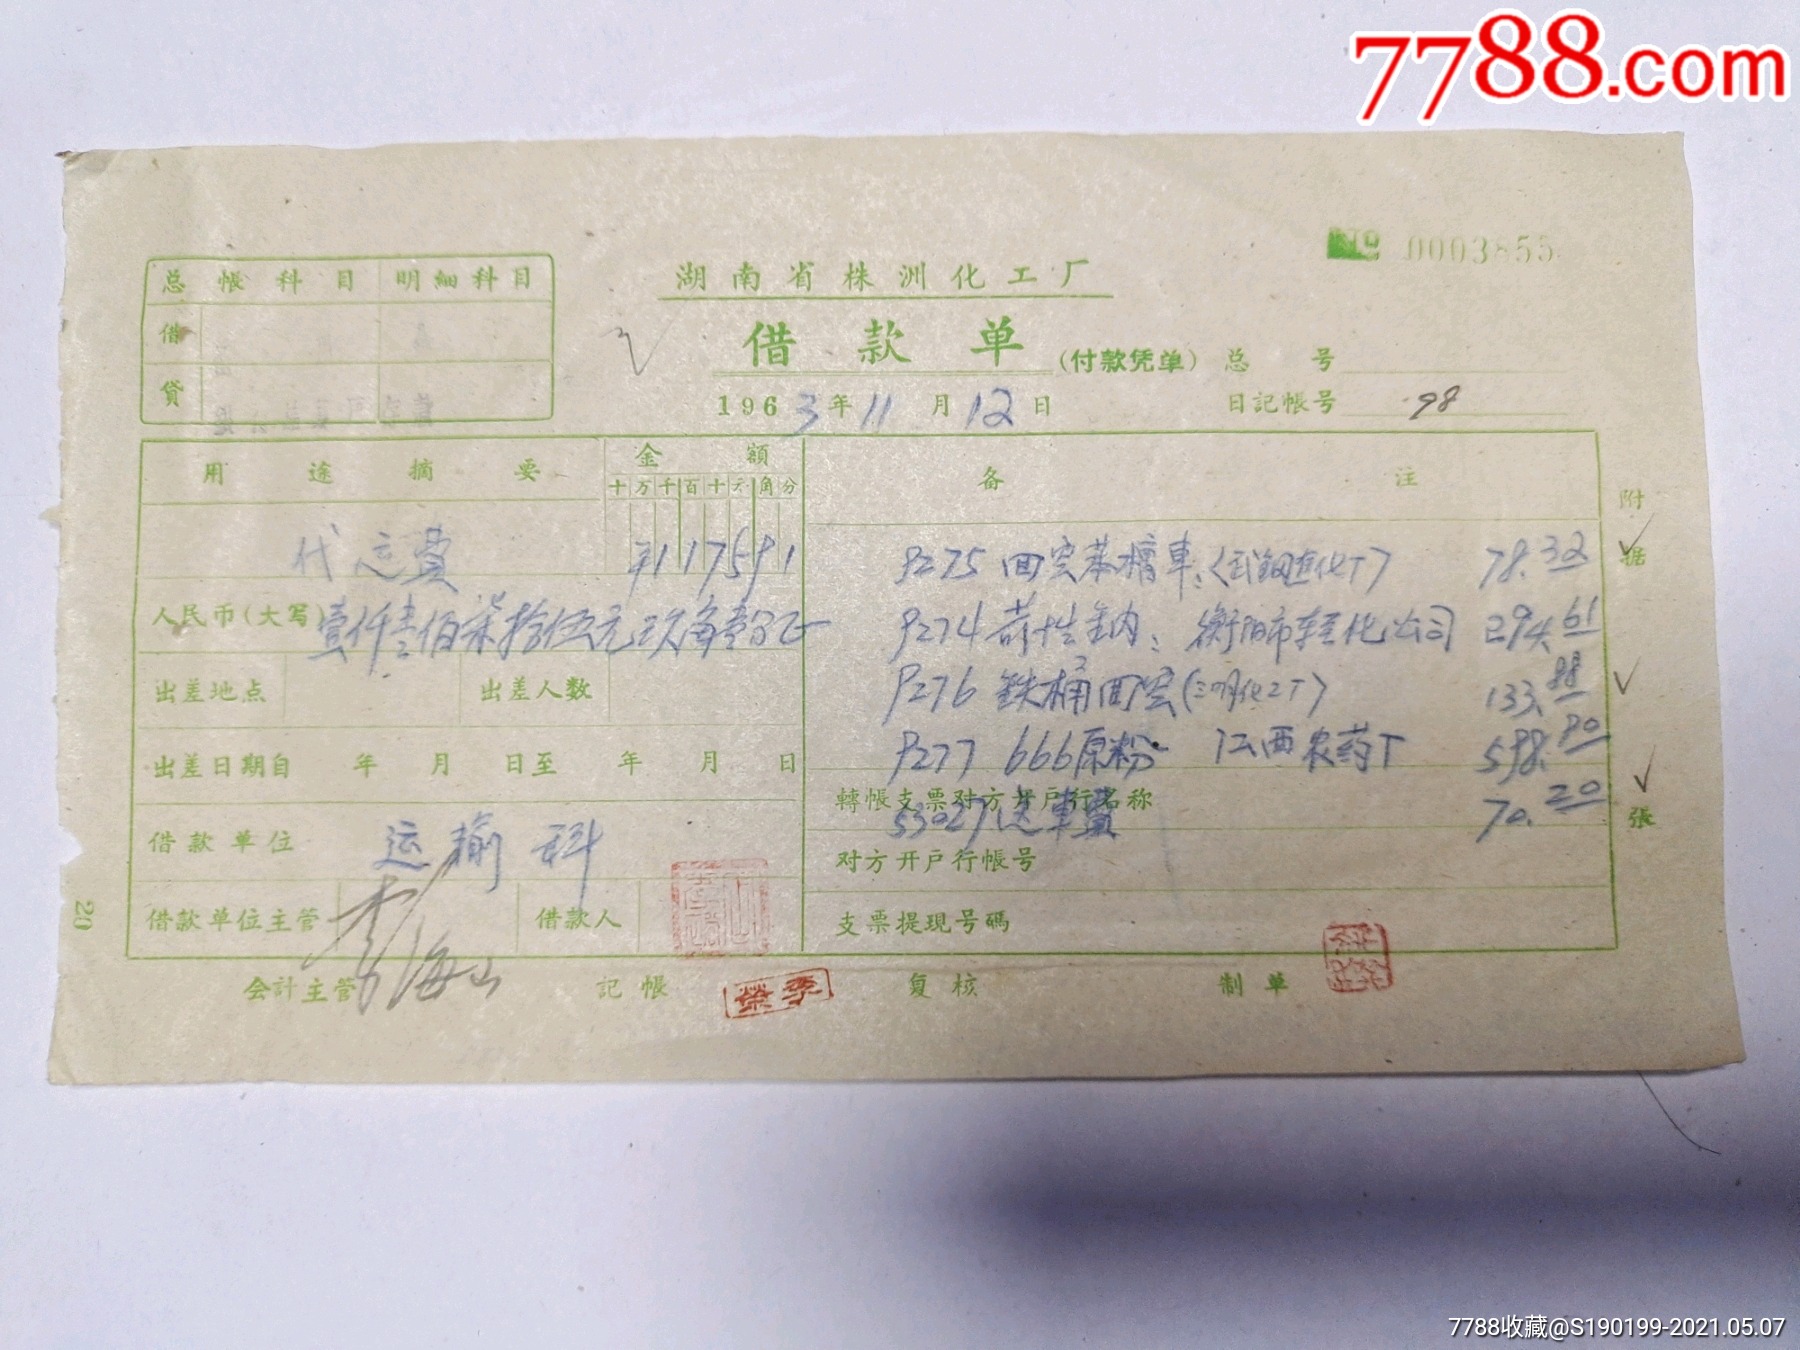 7788.com
№ 0003855
总帐科目 明細科目
借
貸
湖南省株洲化工厂
借款单 (付款凭单) 总 号
1963年11月12日 日記帳号 98
用途摘要 金額 备注
十万千百十元角分
附
据
張
代运费 ¥1175.91
人民币(大写)壹仟壹佰柒拾伍元玖角壹分正
出差地点 出差人数
出差日期自 年 月 日至 年 月 日
借款单位 运输科
借款单位主管 李海山 借款人
P275 回空苯槽車: 78.32
P274 苛性钠: 衡阳市轻化公司 294.61
P276 铁桶回空(三明化工厂) 133.88
P277 666原粉 江西农药厂 598.90
轉帳支票对方开户行名称
53027送車费 70.20
对方开户行帳号
支票提現号碼
会計主管 記帳 复核 制单
20
7788收藏@S190199-2021.05.07